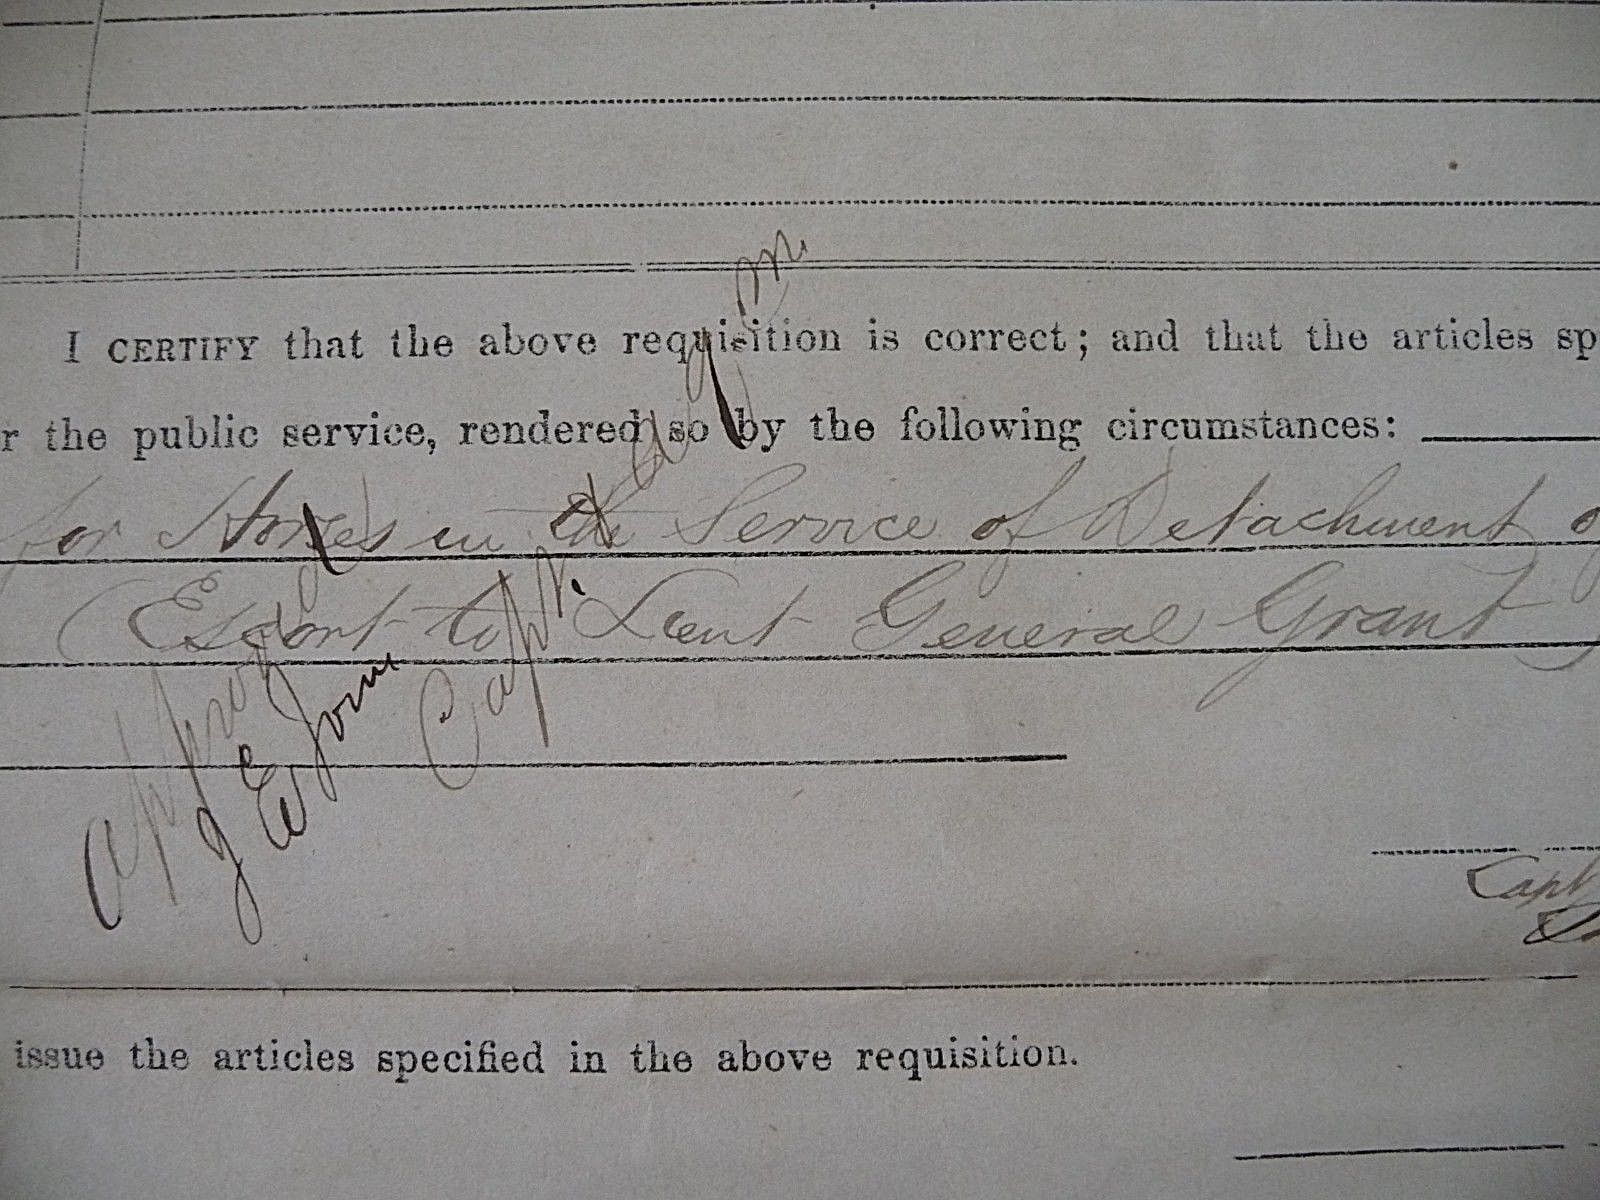 I CERTIFY that the above requisition is correct; and that the articles sp
r the public service, rendered so by the following circumstances:
for Horses in the Service of Detachment o
Escort to Lieut General Grant
Approved
J E Jones
Capt. & a q m.
Capt
issue the articles specified in the above requisition.